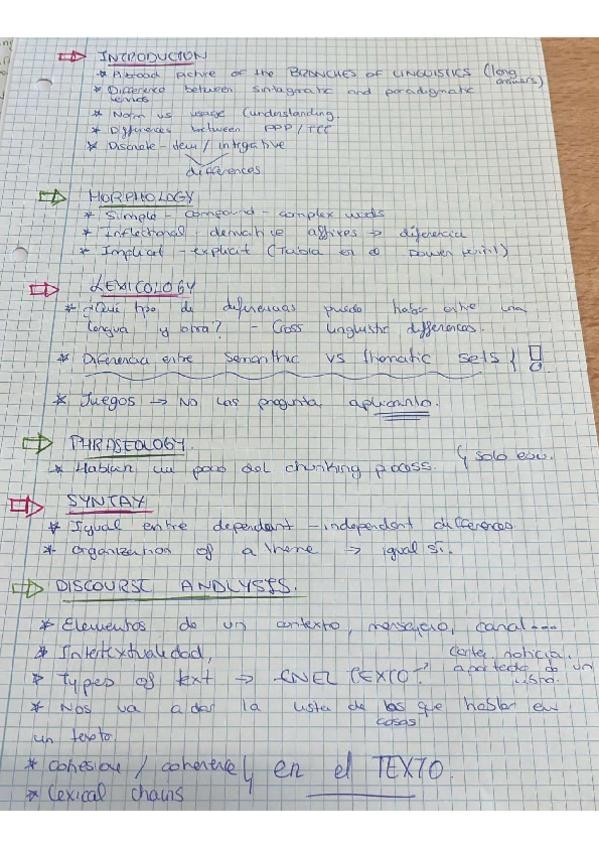 INTRODUCTION
* Abroad picture of the BRANCHES OF LINGUISTICS (long answers)
* Difference between sintagmatic and paradigmatic
* Norm vs usage (understanding.
* Differences between PPP / TCC
* Discrete - item / integrative
differences
MORPHOLOGY
* Simple - compound - complex words
* Inflectional - derivative affixes → diferencia
* Implicit - explicit (Tabla en el power point)
LEXICOLOGY
* ¿Qué tipo de diferencias puede haber entre una
lengua y otra? - Cross linguistic differences.
* Diferencia entre semanthic vs thematic sets !
* Juegos → No los pregunta aplicarlo.
PHRASEOLOGY.
* Hablar un poco del chunking process. solo eso.
SYNTAX
* Igual entre dependent - independent differences
* organization of a theme → igual sí.
DISCOURSE ANALYSIS.
* Elementos de un contexto, mensajero, canal...
* Intertextualidad,
* Types of text → EN EL TEXTO? carta, noticia, apartado de un
* Nos va a dar la lista de las cosas que hablar en
un texto.
* cohesion / coherence en el TEXTO.
* Lexical chains